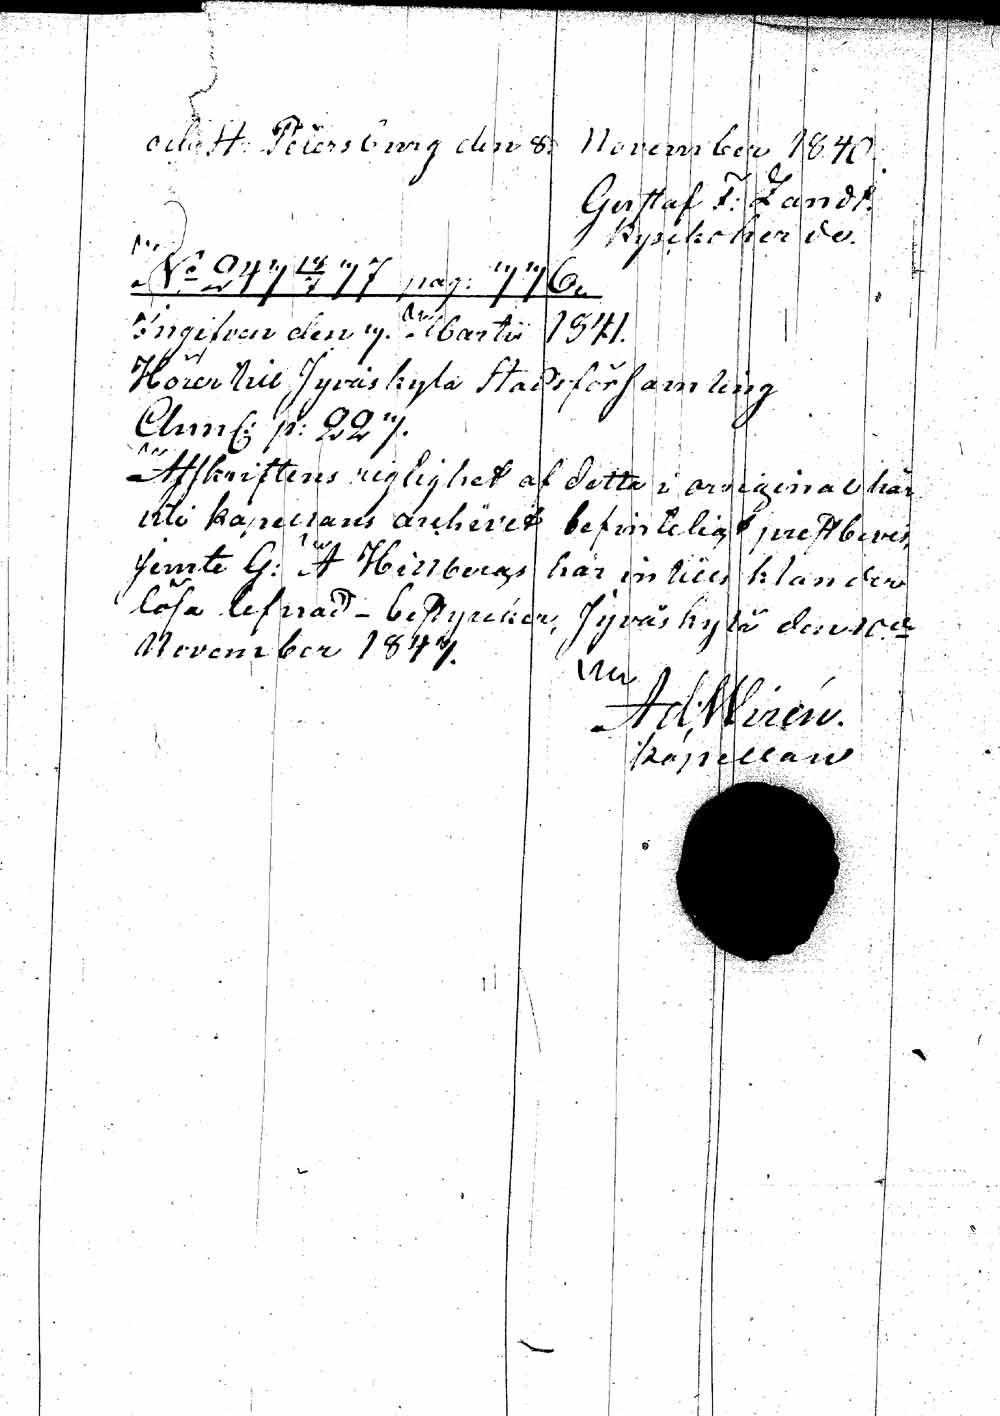 och St. Petersburg den 8. November 1840.
Gustaf F: Zandt.
Kyrkoherde.
No 247 18/7 77 pag: 776.
Ingifven den 7. Martii 1841.
Hörer till Jyväskylä Stadsförsamling
Ann: p: 227.
Afskriftens riglighet af detta i original här
uti kapellans archivet befinteligt prestbevis,
jemte G: A Hillbergs här intill klander
lösa lefnad - bestyrcker, Jyväskylä den 10de
November 1847.
Ad. Wirén.
kapellan